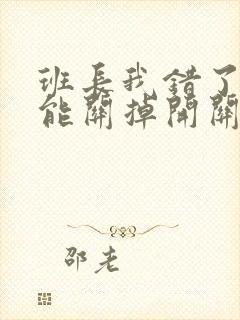 班長我錯了
能關掉開關
邵老